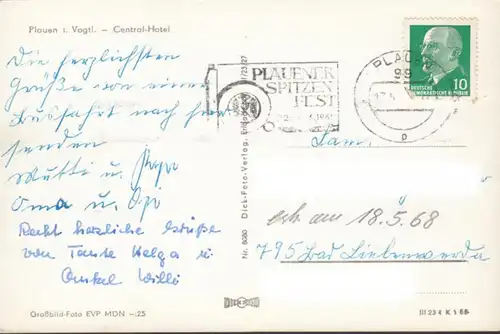 Plauen i. Vogtl. – Central-Hotel
Die herzlichsten
Grüße von einer
Busfahrt nach hier
senden
Mutti u. Papa
Oma u. Opa
Recht herzliche Grüße
von Tante Helga u.
Onkel Willi
Großbild-Foto EVP MDN –.25
Nr. 8080 Dick-Foto-Verlag, Erlbach
PLAUENER
SPITZEN
FEST
PLAUEN
99
DEUTSCHE
DEMOKRATISCHE REPUBLIK
10
Fam.
erh. am 18.5.68
795 Bad Liebenwerda
DICK
III 23 4 K 1 68